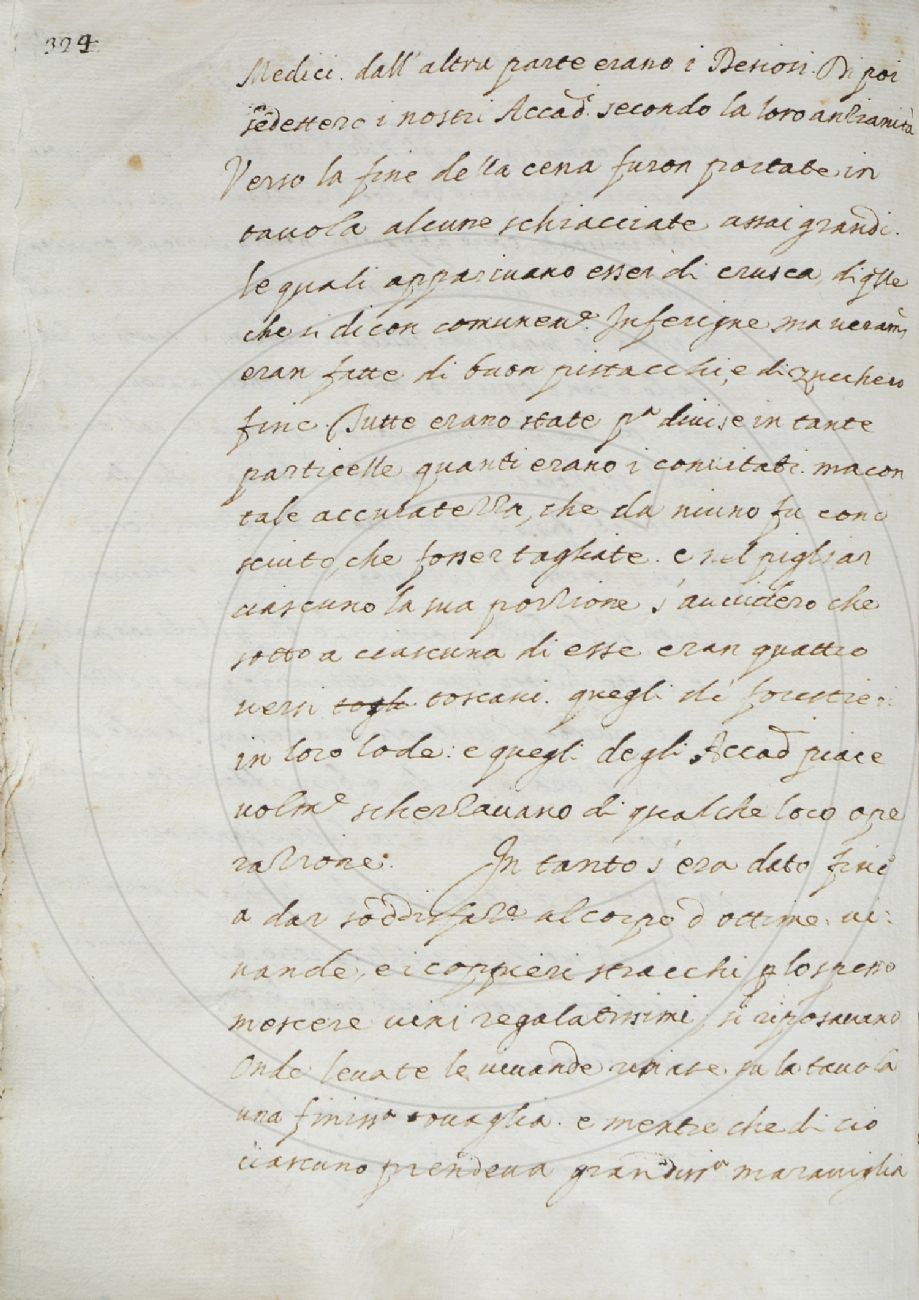 324
Medici. dall' altra parte erano i Desiosi. Di poi
sedettero i nostri Accad. secondo la loro anzianità
Verso la fine della cena furon portate in
tavola alcune schiacciate assai grandi.
le quali apparivano esser di crusca, di qlle
che si dicon comunen.e Inferigne ma veram.
eran fatte di buon pistacchi, e di zucchero
fine Tutte erano state p.a divise in tante
particelle quanti erano i convitati. ma con
tale accuratezza, che da niuno fu cono
sciuto, che fosser tagliate. e nel pigliar
ciascuno la sua porzione s'avvidero che
sotto a ciascuna di esse eran quattro
versi toscani. quegli de forestie:
in loro lode: e quegli degli Accad. piace
volm.e scherzavano di qualche loro ope
razione. In tanto s'era dato fine
a dar soddisfare al corpo d ottime. vi:
vande, e i coppieri stracchi p lo spesso
mescere vini regalatissimi, si riposavano
Onde levate le vivande rimase su la tavola
una finiss.a tovaglia. e mentre che di cio
ciascuno prendeva grandiss.a maraviglia